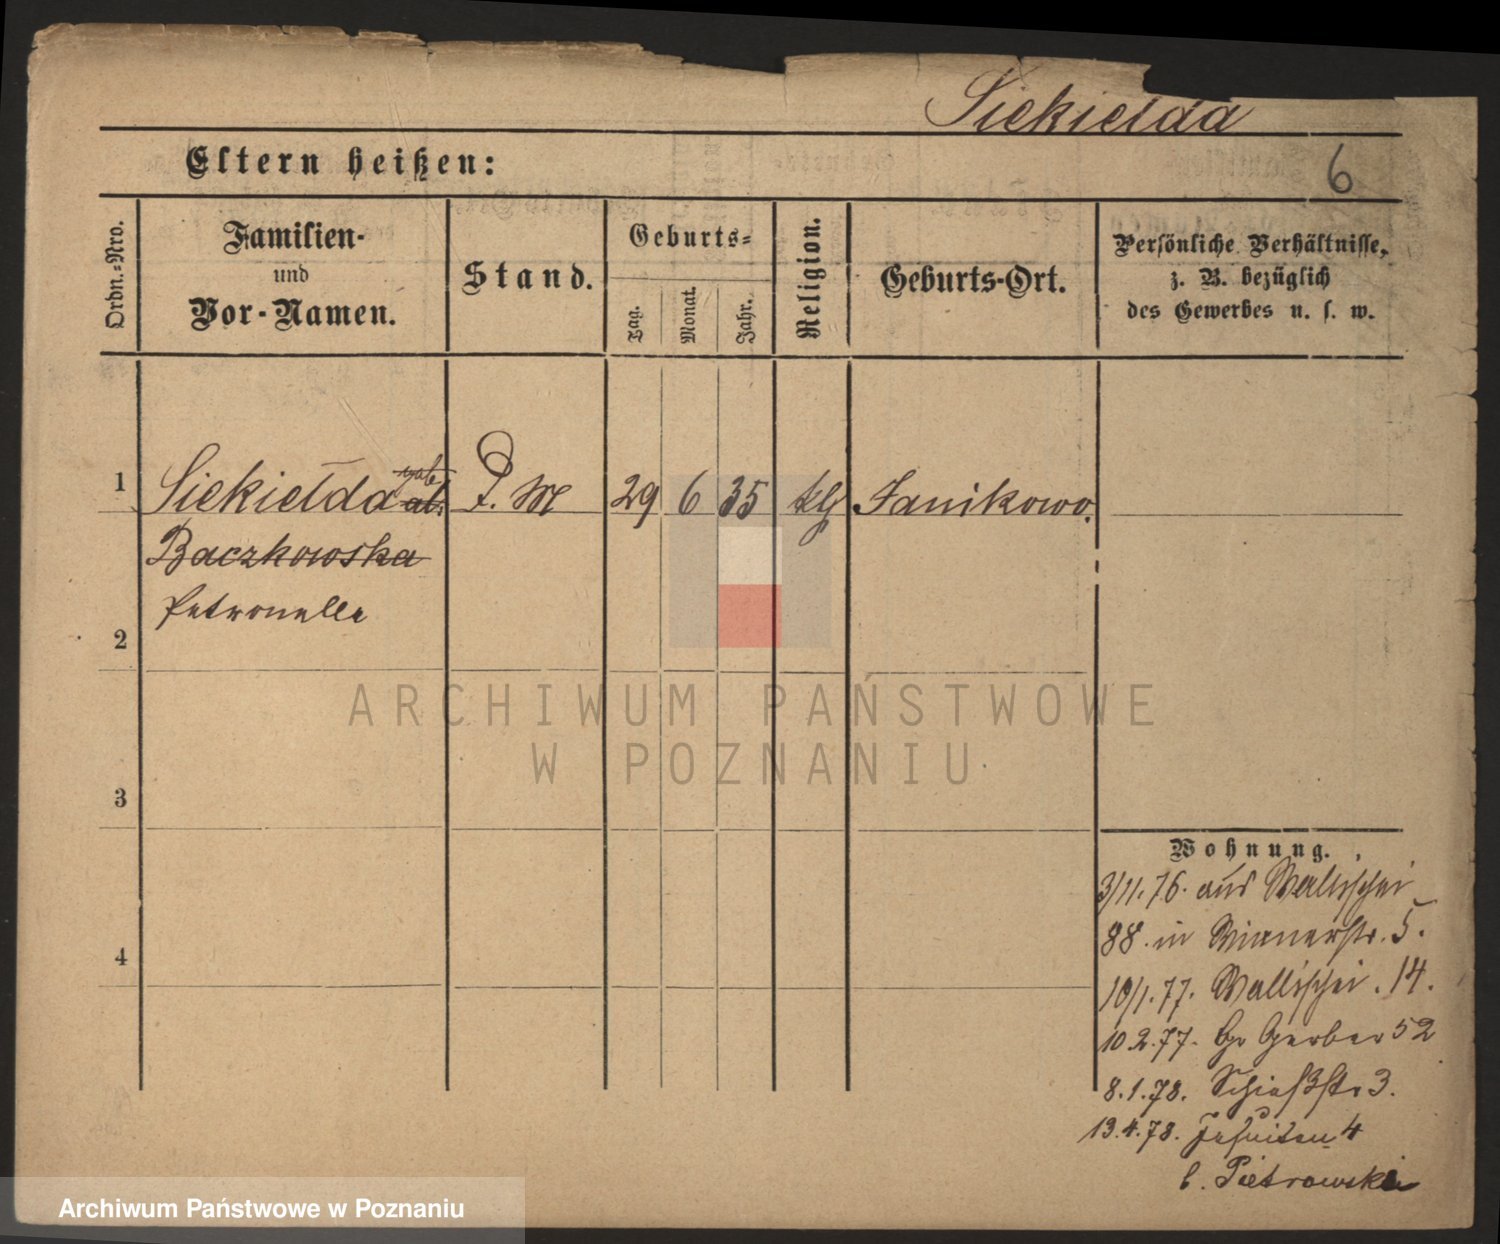 Siekielda
Eltern heißen:
6
Ordn.-Nro.
Familien-
und
Vor-Namen.
Stand.
Geburts-
Tag.
Monat.
Jahr.
Religion.
Geburts-Ort.
Persönliche Verhältnisse,
z. B. bezüglich
des Gewerbes u. s. w.
1 Siekiełda 29 6 35 Janikowo.
Baczkowska
Petronella
2
3
4
ARCHIWUM PAŃSTWOWE
W POZNANIU
Wohnung.
3/11.76. aus Wallischei
88 in Wienerstr. 5.
10/1.77. Wallischei. 14.
10.2.77. Gr Gerber 52
8.1.78. Schießstr 3.
13.4.78. Jesuiten 4
b. Pietrowski
Archiwum Państwowe w Poznaniu